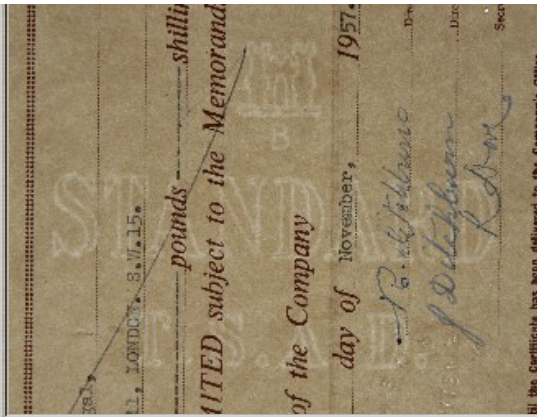 gal,
ll, LONDON. S.W.15.
pounds shilli
MITED subject to the Memorand
of the Company
day of November, 1957.
J Ditchburn
Secr
til the Certificate has been delivered to the Company's Office
B
STANDARD